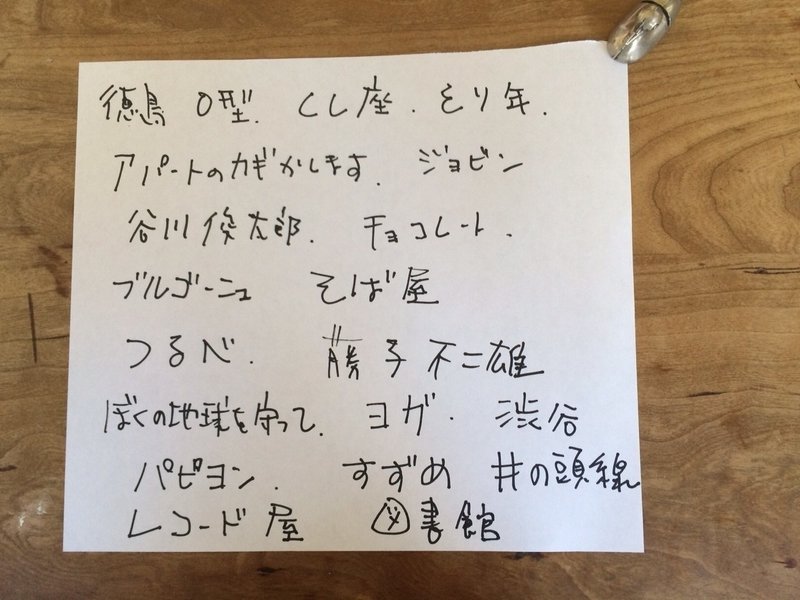 徳島 O型. しし座. とり年.
アパートのカギかします. ジョビン
谷川俊太郎. チョコレート.
ブルゴーニュ そば屋
つるべ. 藤子不二雄
ぼくの地球を守って. ヨガ. 渋谷
パピヨン. すずめ 井の頭線
レコード屋 図書館